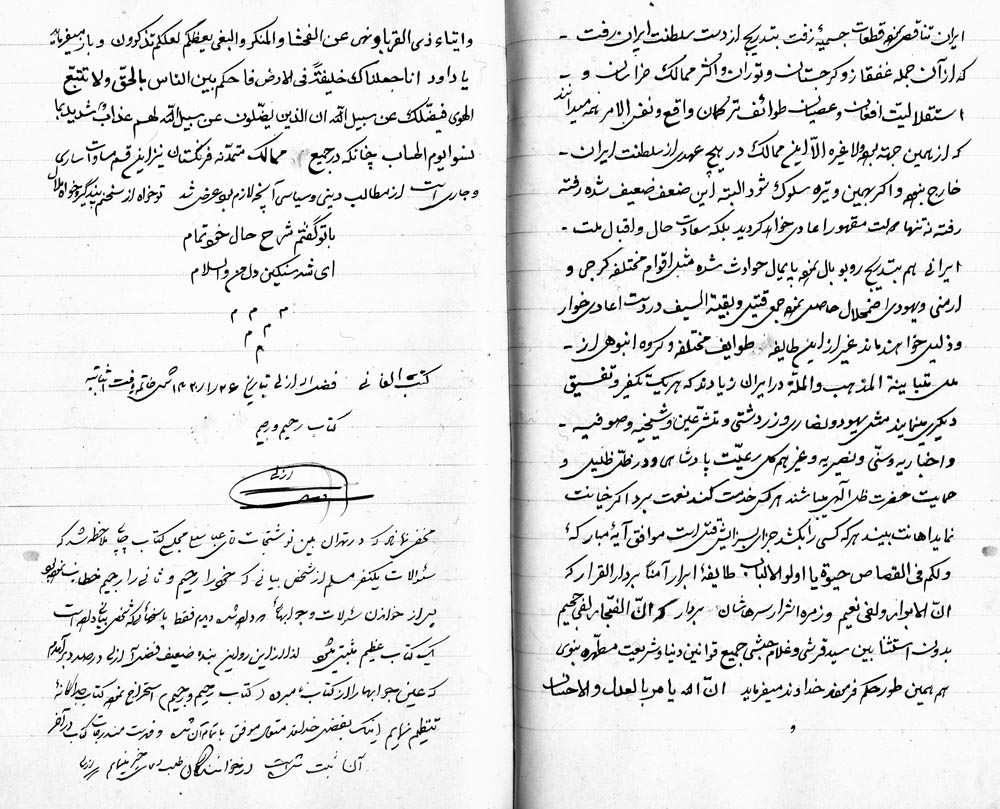 ایران تناقص نموده قطعات جسیمه رفت بتدریج از دست سلطنت ایران برفت -
که از آن جمله قفقاز و گرجستان و توران و اکثر ممالک خزاران و -
استقلالیت افغان و عصیان طوائف ترکمان واقع و نفس الامر همه میدانند
که از همین جهته بوده ولاغیره الّا این ممالک در هیچ عهدی از سلطنت ایران -
خارج نبوده و اگر بهمین وتیره سلوک شود البته این ضعف ضعیف شده رفته
رفته نه تنها دولت مقهور اعادی خواهد گردید بلکه سعادت حال و اقبال ملت -
ایرانی هم بتدریج رو بوبال نموده پایمال حوادث شده مثل اقوام مختلفه کرجی و
ارمنی و یهودی اضمحلال حاصل نموده جمع قتیل و بقیة السیف در دست اعادی خوار
و ذلیل خواهند ماند غیر از این طایفه طوایف مختلفه و گروه انبوهی از -
ملل متباینة المذهب والملة در ایران زیادند که هر یک تکفیر و تفسیق
دیگری مینمایند مثل یهود و نصاری و زردشتی و متشرعین و شیخیه و صوفیه -
و اخباریه و سنّی و نصیریه و غیرهم کل رعیّت پادشاهی و در ظلّ ظلیل و
حمایت حضرت ظل الهی میباشند هر کس خدمت کند نعمت برد اگر خیانت
نماید اهانت بیند هر که کسی را بکشد جزای سزایش قتل است موافق آیهٔ مبارکهٔ
ولکم فی القصاص حیوة یا اولو الالباب طایفهٔ ابرار آمناً بردار القرار که
انّ الابرار لفی نعیم و زمره اشرار سرهاشان بردار که انّ الفجار لفی جحیم
بدون استثنا بین سید قرشی و غلام حبشی جمیع قوانین دنیا و شریعت مطهره نبوی
هم همین طور حکم فرموده خداوند میفرماید انّ الله یامر بالعدل و الاحسان
و
وایتاء ذی القربا و نهی عن الفحشا والمنکر والبغی یعظکم لعلکم تذکرون و باز میفرماید
یا داود انا جعلناک خلیفةً فی الارض فاحکم بین الناس بالحقّ ولا تتبّع
الهوی فیضّلک عن سبیل الله ان الذین یضّلون عن سبیل الله لهم عذابٌ شدید بما
نسوا یوم الحساب چنانکه در جمیع ممالک متمدنه فرنگستان نیز این قسم مساوات ساری
و جاری است از مطالب دینی و سیاسی آنچه لازم بود عرض شد تو خواه از سخنم پند گیر خواه ملال
باتو گفتم شرح حال خود تمام
ای شه سنگین دل من والسلام
م م م
م م
م
کتبه الفانی فضدار ازلی بتاریخ ۱۴۲/۱/۲۶ شمسی خاتمه وقت ثانیه
کتاب رحیم و رجیم
ازلی
مخفی نماند که در تهران بین نوشتجات کتاب ملاحظه شد که
سئوالات یکنفر مسلم از شخص بیانی که خود را رحیم و ثانی را رجیم خطاب نموده بود
پس از خواندن سئوالات و جوابهای دیدم فقط پاسخهائیکه شخص بیانی داده است
یک کتاب عظیم میشود لذا از این رو این بنده ضعیف فضدار ازلی در صدد برآمدم
که عین جوابها را از کتاب نامبرده (کتاب رحیم و رجیم) استخراج نموده کتاب جداگانهٔ
تنظیم نمایم اینک بفضل خداوند متعال موفق باتمام آن شد و فهرست مندرجات کتاب در آخر
آن ثبت شده است از خوانندگان طلب دعای خیر مینمایم ازلی